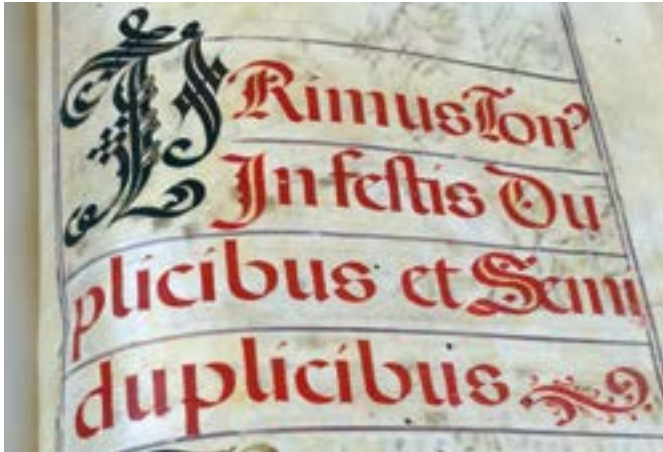 PRimus Ton⁹
In festis Du
plicibus et Semi
duplicibus